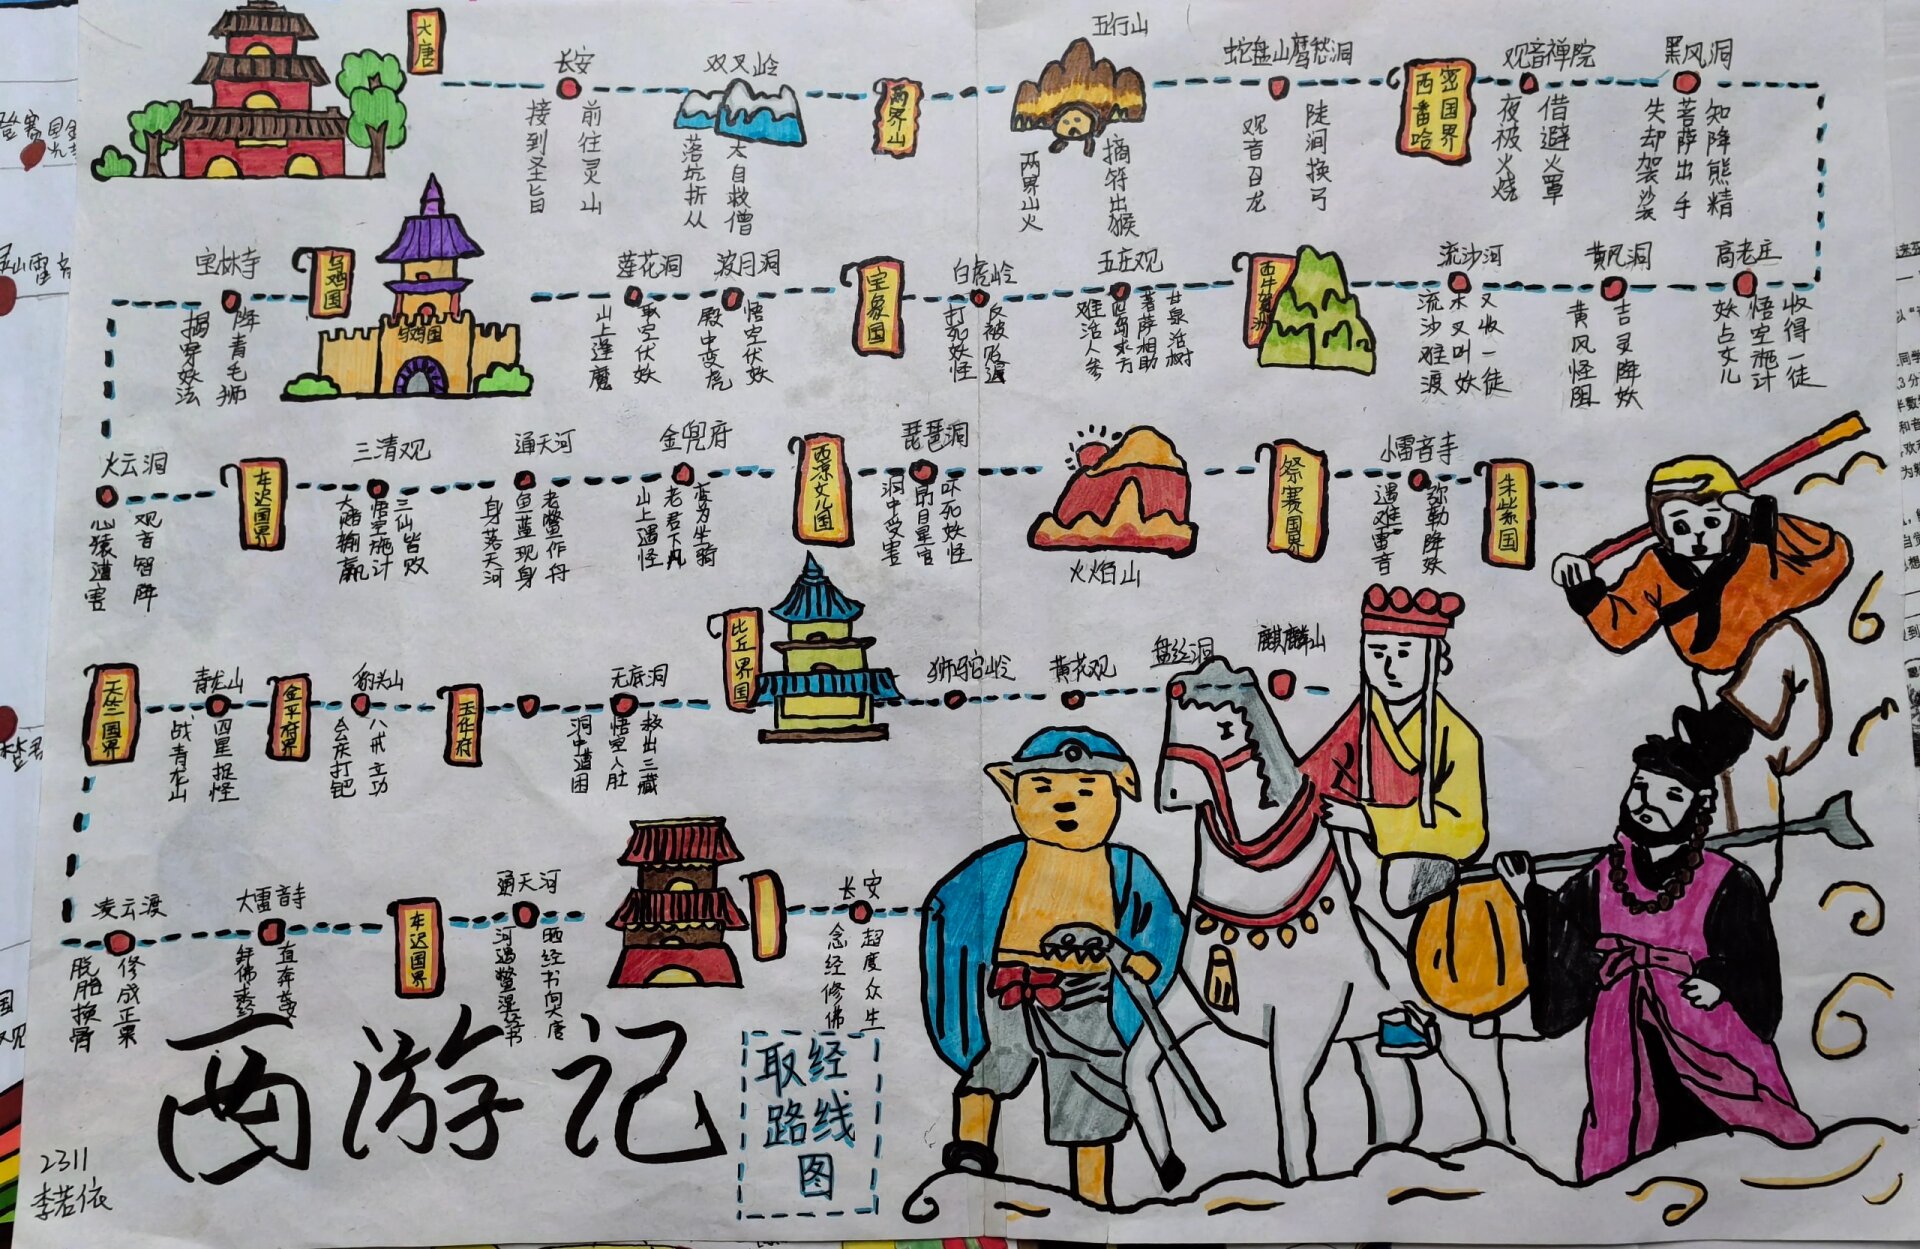 大唐
长安
接到圣旨
前往灵山
双叉岭
落坑折从
太白救僧
两界山
五行山
两界山火
摘符出猴
蛇盘山鹰愁洞
观音召龙
陡涧换弓
西番哈
密国界
观音禅院
夜被火烧
借避火罩
黑风洞
失却袈裟
菩萨出手
知降熊精
高老庄
妖占女儿
悟空施计
收得一徒
黄风洞
黄风怪阻
吉灵降妖
流沙河
流沙难渡
木叉叫妖
又收一徒
西牛贺洲
五庄观
难活人参
四岛求方
菩萨相助
甘泉活树
白虎岭
打死妖怪
反被贬逐
宝象国
波月洞
殿中变虎
悟空伏妖
莲花洞
山上逢魔
悟空伏妖
乌鸡国
乌鸡国
宝林寺
揭穿妖法
降青毛狮
火云洞
心猿遭害
观音智降
车迟国界
三清观
大赌输赢
悟空施计
三仙皆败
通天河
身落天河
鱼蓝现身
老鳖作舟
金兜府
山上遇怪
老君下凡
变为坐骑
西凉女儿国
琵琶洞
洞中受害
昴日星官
吓死妖怪
火焰山
祭赛国界
小雷音寺
遇难雷音
弥勒降妖
朱紫国
麒麟山
盘丝洞
黄花观
狮驼岭
比丘界国
无底洞
洞中遭困
悟空入肚
救出三藏
玉华府
豹头山
会友打钯
八戒立功
金平府界
青龙山
战青龙山
四星捉怪
天竺国界
凌云渡
脱胎换骨
修成正果
大雷音寺
拜佛求经
车迟国界
通天河
河遇鳖湿衣书
晒经书向大唐
长安
念经修佛
超度众生
西游记
取经
路线
图
2311
李若依